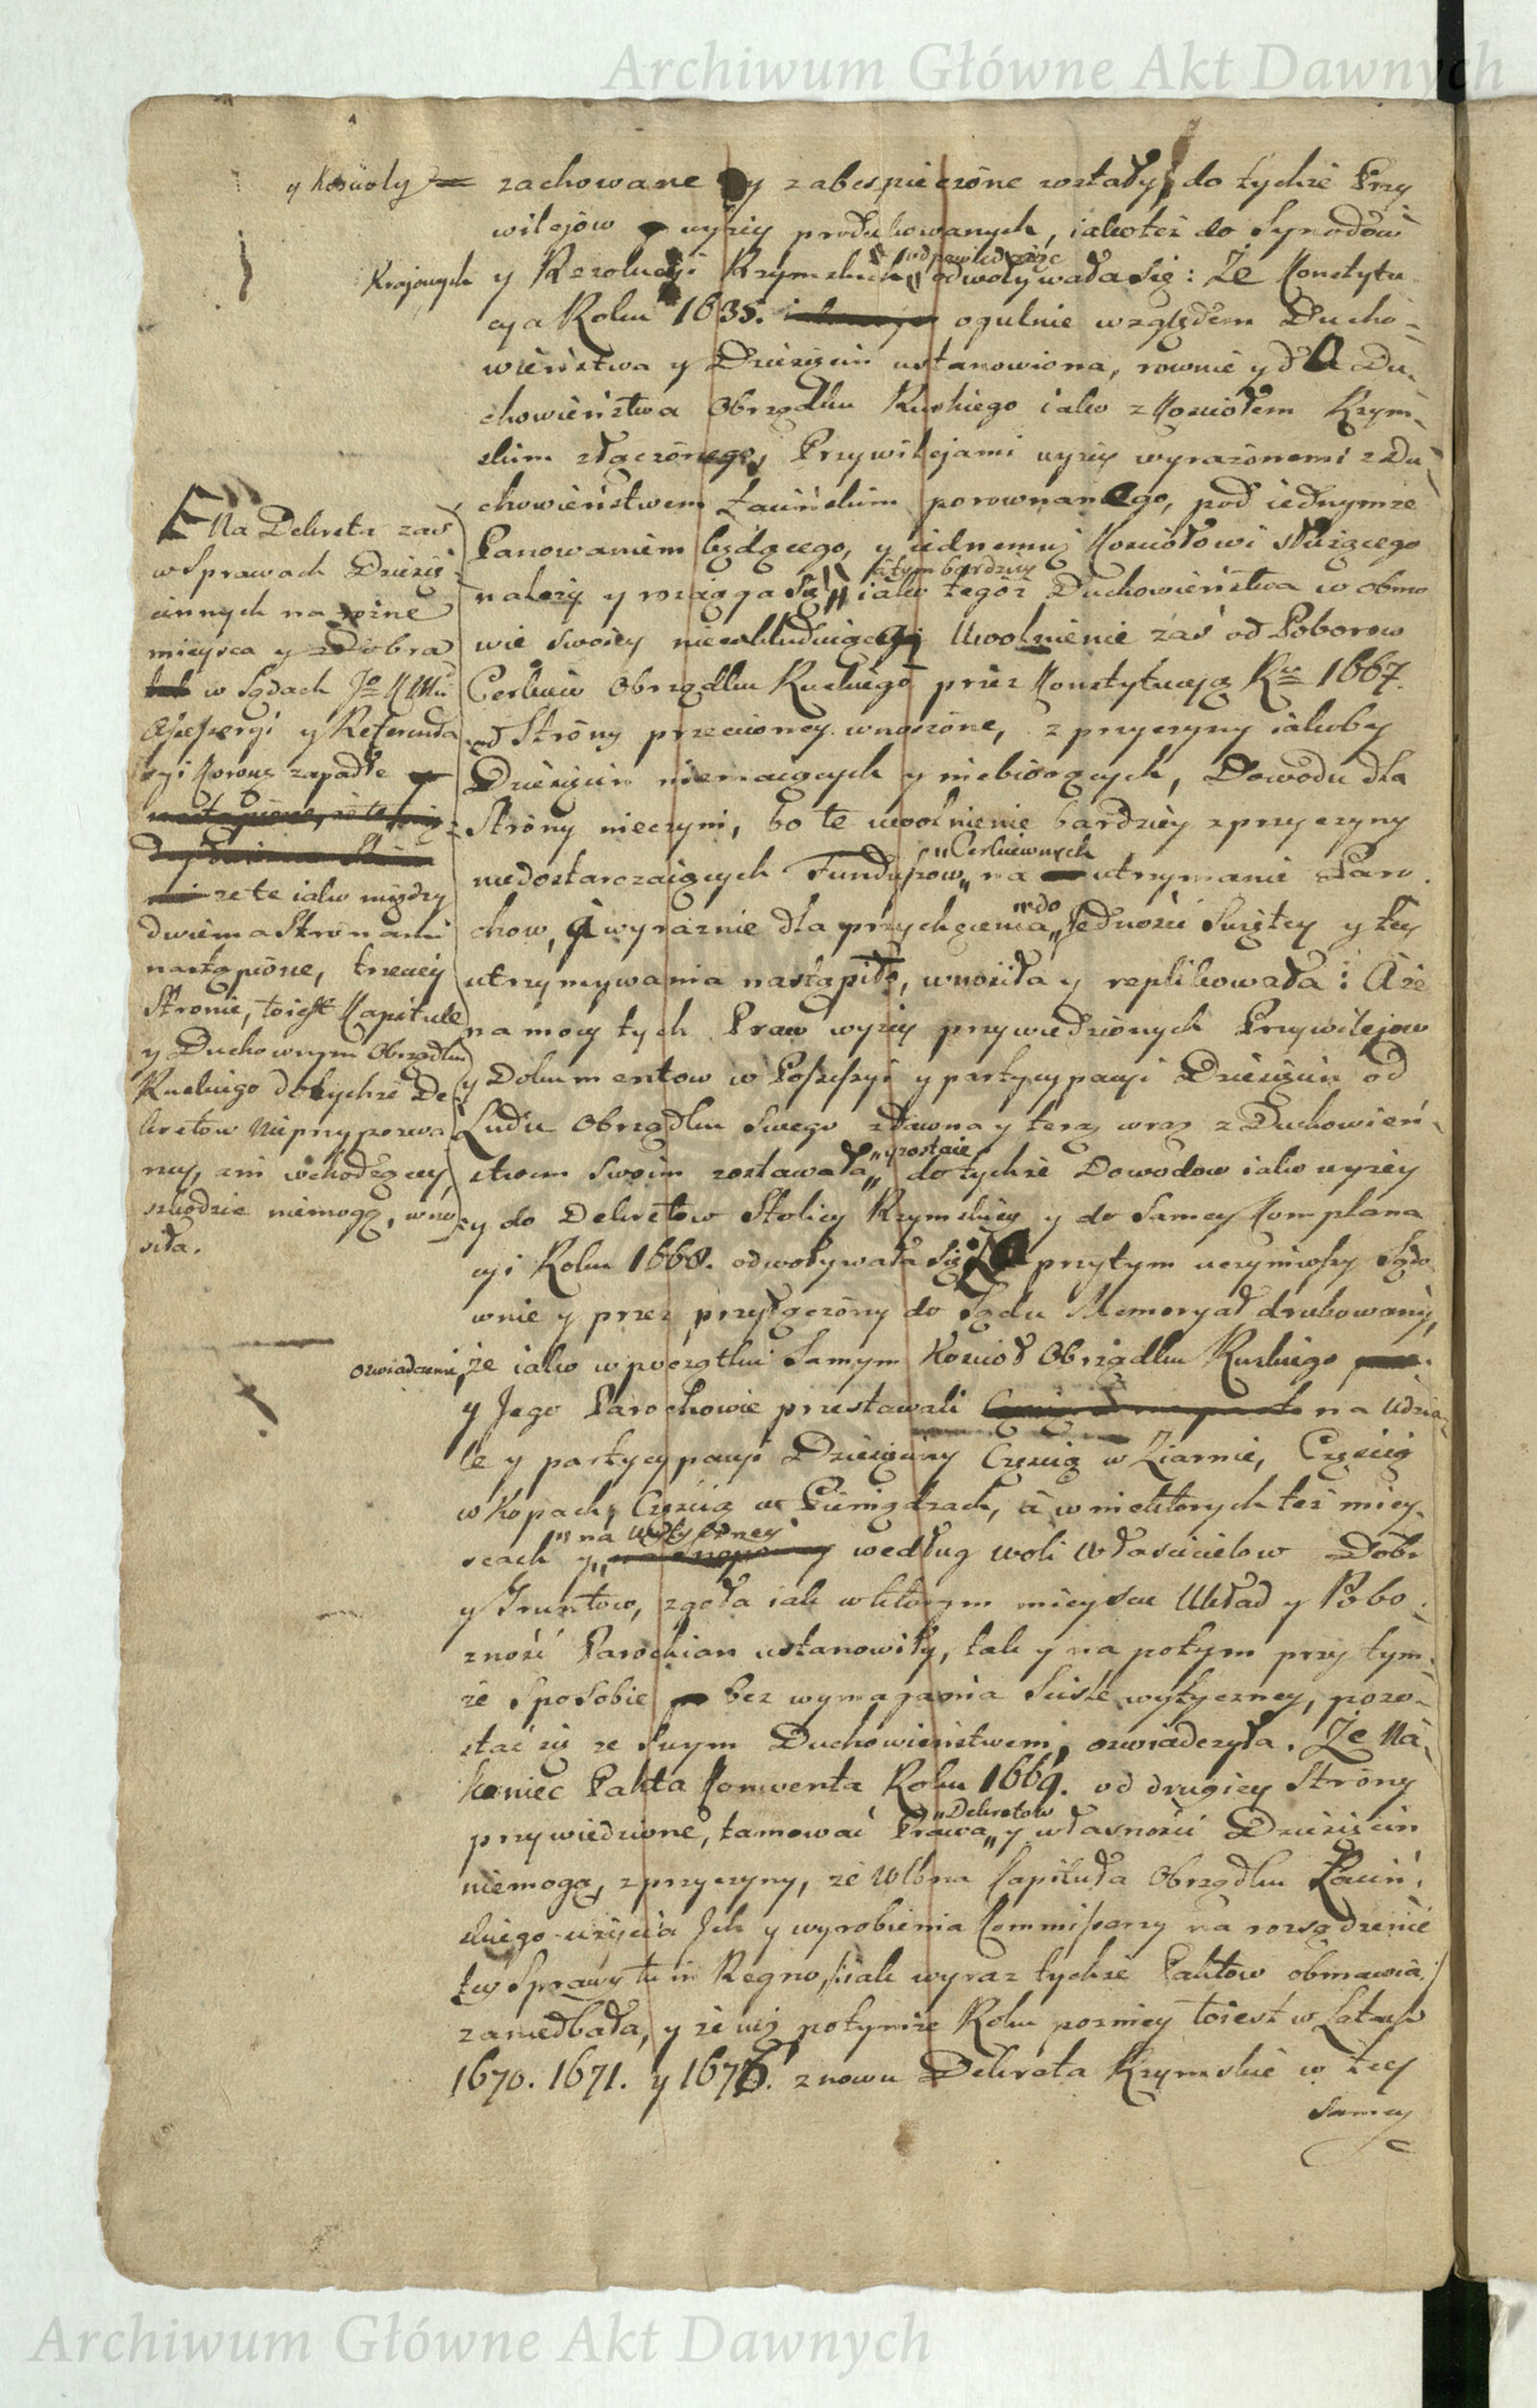 Archiwum Główne Akt Dawnych
y Kościoły
zachowane y zabespieczóne zostały, do tychże Przy
wilejow wyżey produkowanych, iakoteż do Synodów
Krajowych
y Rezolucyi Rzymskich „odpowiedaiąc odwoływała się: Że Konstytu
cya Roku 1635. ogulnie względem Ducho-
wieństwa y Dziesięcin ustanowiona, rownie y dla Du-
chowieństwa Obrządku Ruskiego iako z Kosciołem Rzym-
skim złączónego, Przywilejami wyżey wyrażónemi z Du-
chowieństwem Łacińskim porownanego, pod iednymże
Panowaniem będącego, y iednemuż Kosciołowi służącego
należy y rozciąga się „a tym bardziey iako tegoż Duchowieństwa w obmo
wie swoiey nieexkludującey Uwolnienie zaś od Poborow
Cerkwiow Obrządku Ruskiego przez Konstytucyą R° 1667.
od Stróny przeciwney wnoszóne, z przyczyny iakoby
Dziesięcin niemaiących y niebiorących, Dowodu dla
Stróny nieczyni, bo te uwolnienie bardziey z przyczyny
niedostarczaiących Funduszow „Cerkiewnych na utrzymanie Paro
chow, á wyraznie dla przychęcenia „do Jedności Swiętey y tey
utrzymywania nastąpiło, wnosiła y replikowała: A że
na mocy tych Praw wyżey przywiedzionych Przywilejow
y Dokumentow w Possessyi y partycypacyi Dziesięcin od
Ludu Obrządku Swego zdawna y teraz wraz z Duchowień-
stwem swoim zostawała „y zostaie do tychże Dowodow iako wyżey
y do Dekretow Stolicy Rzymskiey y do samey Komplana
cyi Roku 1668. odwoływała się: Że przytym uczyniwszy Sądo
wnie y przez przyłączóny do Sądu Memoryał drukowany,
oświadczenie,
że iako w początku samym Kosciół Obrządku Ruskiego
y Jego Parochowie przestawali na udzia-
le y partycypacyi Dziesięciny Częścią w Ziarnie, Częścią
w Kopach, Częścią w Pieniądzach, á w niektorych też miey-
scach y „na Wytyczney według woli Właścicielow Dobr
y Gruntow, zgoła iak w ktorym mieyscu Układ y Pobo-
żność Parochian ustanowiły, tak y na potym przy tym-
że Sposobie bez wymagania sciśle wytyczney, pozo-
stać się ze swym Duchowieństwem, oswiadczyła. Że Na-
koniec Pakta Konwenta Roku 1669. od drugiey Stróny
przywiedzione, tamować Prawa „Dekretow y własności Dziesięcin
niemogą, z przyczyny, że Wlbna Kapituła Obrządku Łaciń-
skiego użycia Ich y wyrobienia Commissarzy na rozsądzenie
tey Sprawy tu in Regno, /:iak wyraz tychże Paktow obmawia:/
zaniedbała, y że iuż potymże Roku pozniey toiest w Latach
1670. 1671. y 1676. znowu Dekreta Rzymskie w tey
samey
Na Dekreta zaś
w Sprawach Dziesię
cinnych na rożne
mieysca y Dobra
w Sądach Jo K Mci
Assessoryi y Referenda
ryi Korony zapadłe
że te iako między
dwiema Strónami
nastąpióne, trzeciey
Stronie, toiest Kapitule
y Duchownym Obrządku
Ruskiego do tychże De
kretow nieprzypozwa
ney, ani wchodzącey,
szkodzić niemogą, wno
siła.
Archiwum Główne Akt Dawnych